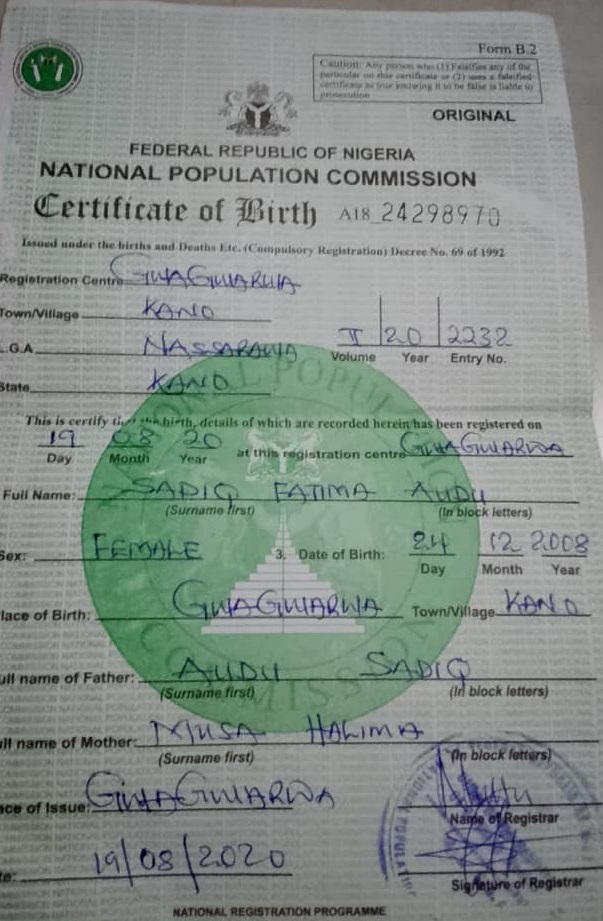 Form B.2
Caution: Any person who (1) Falsifies any of the
particular on this certificate or (2) uses a falsified
certificate as true knowing it to be false is liable to
prosecution
ORIGINAL
FEDERAL REPUBLIC OF NIGERIA
NATIONAL POPULATION COMMISSION
Certificate of Birth A18 24298970
Issued under the births and Deaths Etc. (Compulsory Registration) Decree No. 69 of 1992
Registration Centre GWAGWARWA
Town/Village KANO
L.G.A NASSARAWA
II 20 2232
Volume Year Entry No.
State KANO
This is certify the birth, details of which are recorded herein has been registered on
19 08 20 at this registration centre GWAGWARWA
Day Month Year
Full Name: SADIQ FATIMA AUDU
(Surname first) (In block letters)
Sex: FEMALE 3. Date of Birth: 24 12 2008
Day Month Year
lace of Birth: GWAGWARWA Town/Village KANO
ull name of Father: AUDU SADIQ
(Surname first) (In block letters)
ull name of Mother: MUSA HALIMA
(Surname first) (In block letters)
ace of Issue: GWAGWARWA
Name of Registrar
te: 19/08/2020
Signature of Registrar
NATIONAL REGISTRATION PROGRAMME